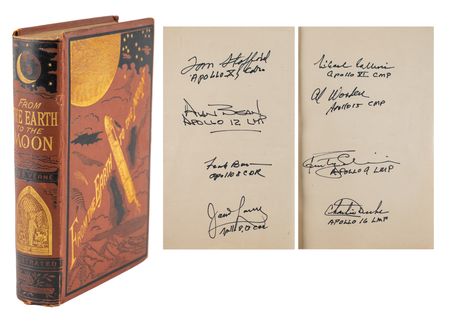 FROM
THE EARTH
TO THE
MOON
VERNE
ILLUSTRATED
FROM THE EARTH
Tom Stafford
APOLLO X CDR
Alan Bean
APOLLO 12 LMP
Frank Borman
apollo 8 CDR
James Lovell
Apollo 8, 13 CDR
Michael Collins
Apollo XI CMP
Al Worden
Apollo 15 CMP
APOLLO 9 LMP
Charlie Duke
APOLLO 16 LMP